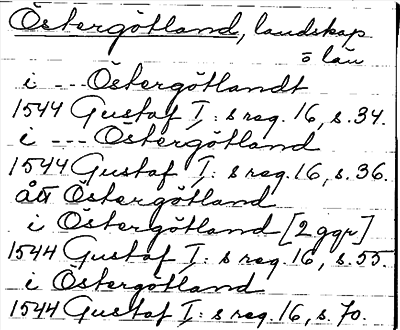 Östergötland, landskap
o län
i --- Östergötlandt
1544 Gustaf I: s reg. 16, s. 34.
i --- Östergötland
1544 Gustaf I: s reg. 16, s. 36.
ått Östergötland
i Östergötland [2 ggr]
1544 Gustaf I: s reg. 16, s. 55.
i Östergötland
1544 Gustaf I: s reg. 16, s. 70.